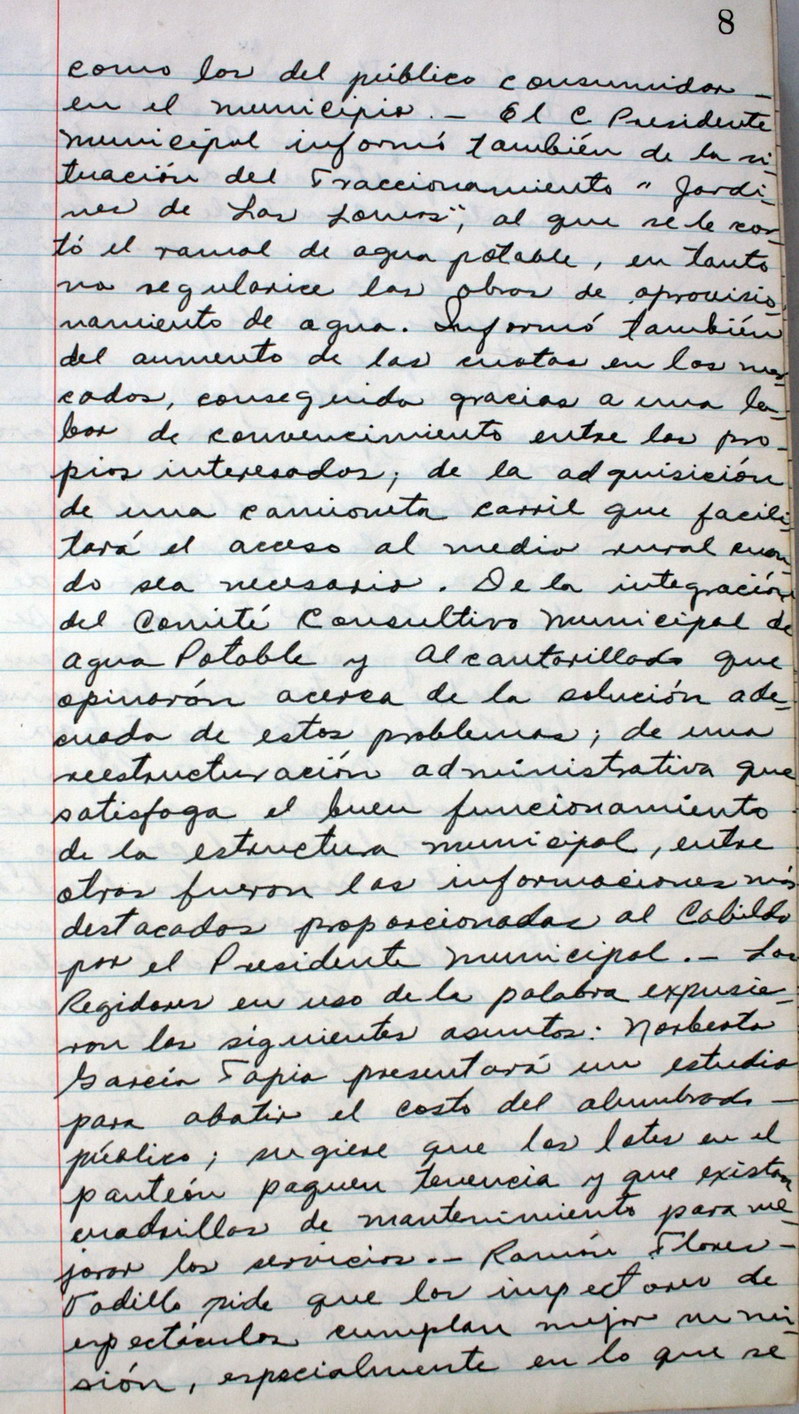 8
como los del público consumidor -
en el municipio. - El C Presidente
Municipal informó también de la si-
tuación del Fraccionamiento "Jardi-
nes de Las Lomas", al que se le cor-
tó el ramal de agua potable, en tanto
no regularice las obras de aprovisio-
namiento de agua. Informó también
del aumento de las cuotas en los mer-
cados, conseguida gracias a una la-
bor de convencimiento entre los pro-
pios interesados; de la adquisición
de una camioneta carril que facili-
tará el acceso al medio rural cuan-
do sea necesario. De la integración
del Comité Consultivo Municipal de
Agua Potable y Alcantarillado que
opinarán acerca de la solución ade-
cuada de estos problemas; de una
reestructuración administrativa que
satisfaga el buen funcionamiento
de la estructura municipal, entre
otras fueron las informaciones más
destacadas proporcionadas al Cabildo
por el Presidente Municipal. - Los
Regidores en uso de la palabra expusie-
ron los siguientes asuntos: Norberto
García Tapia presentará un estudio
para abatir el costo del alumbrado -
público; sugiere que los lotes en el
panteón paguen tenencia y que existan
cuadrillas de mantenimiento para me-
jorar los servicios. - Ramón Flores -
Padilla pide que los inspectores de
espectáculos cumplan mejor su mi-
sión, especialmente en lo que se